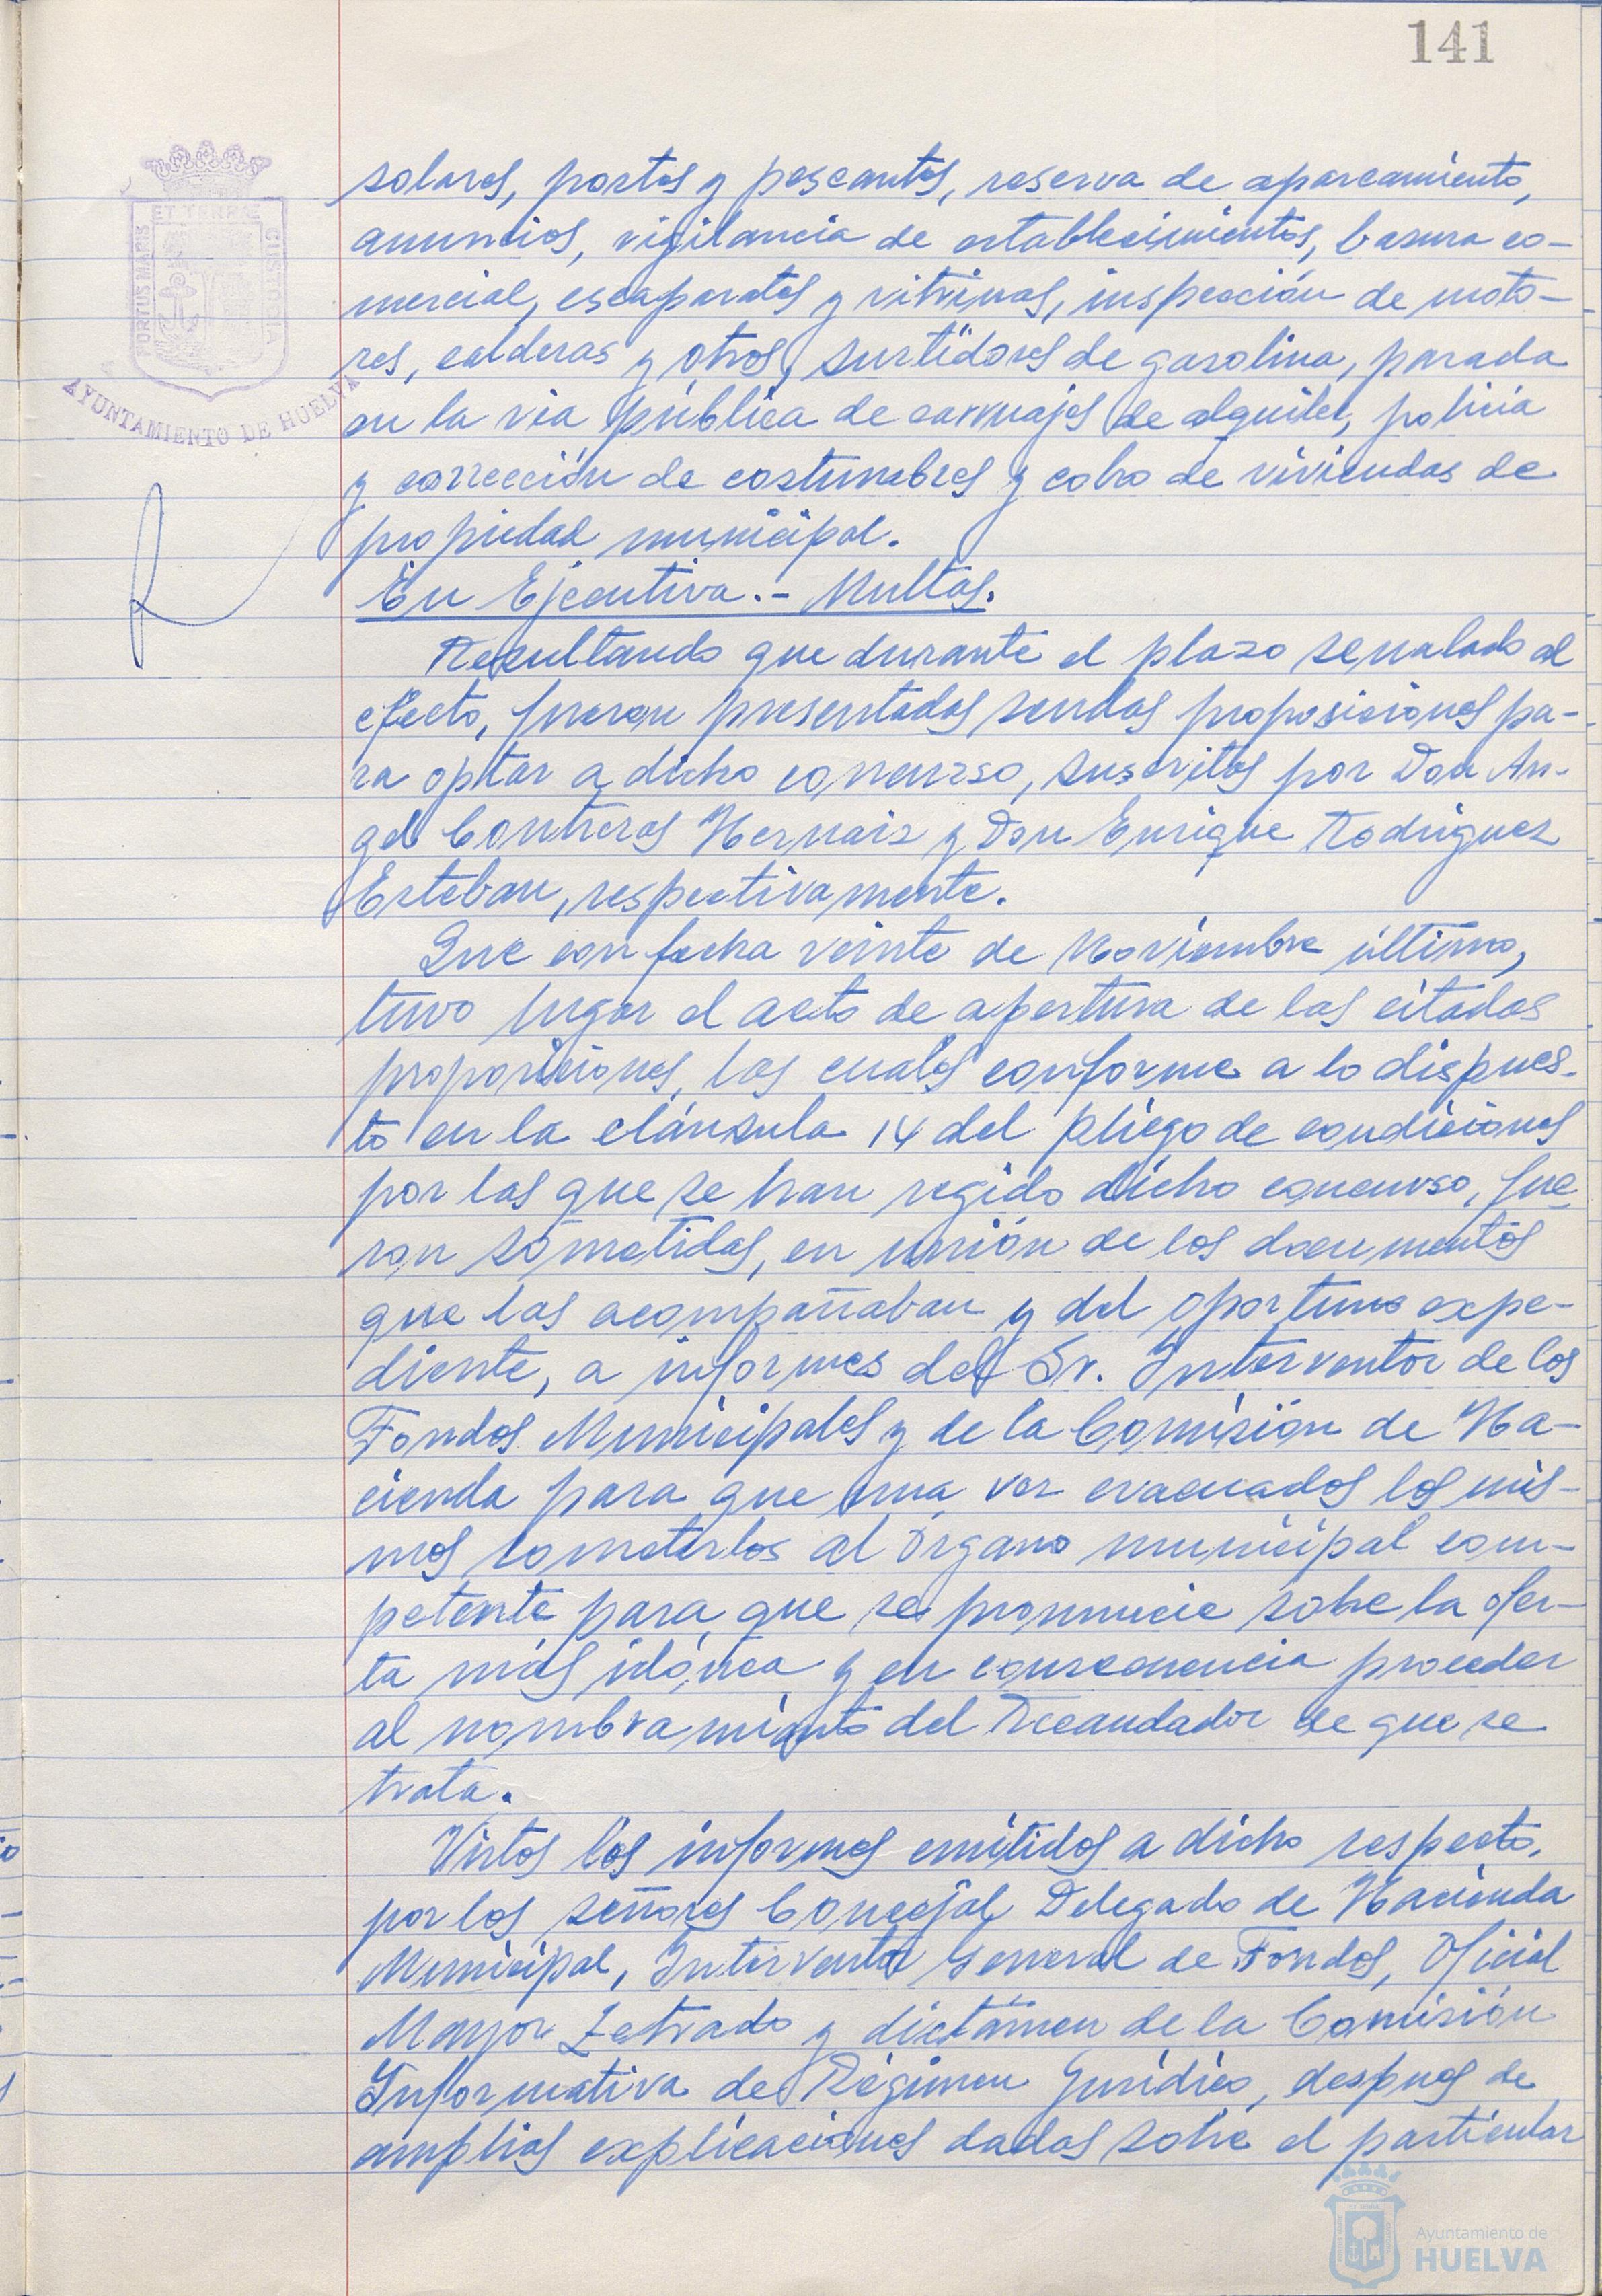 141
PORTUS MARIS ET TERRAE CUSTODIA
AYUNTAMIENTO DE HUELVA
solares, postes y pescantes, reserva de aparcamiento,
anuncios, vigilancia de establecimientos, basura co-
mercial, escaparates y vitrinas, inspección de moto-
res, calderas y otros, surtidores de gasolina, parada
en la via pública de carruajes de alquiler, policia
y corrección de costumbres y cobro de viviendas de
propiedad municipal.
En Ejecutiva.- Multas.
Resultando que durante el plazo señalado al
efecto, fueron presentadas sendas proposiciones pa-
ra optar a dicho concurso, suscritas por Don An-
gel Contreras Hernaiz y Don Enrique Rodriguez
Esteban, respectivamente.
Que con fecha veinte de Noviembre último,
tuvo lugar el acto de apertura de las citadas
proposiciones, las cuales conforme a lo dispues-
to en la cláusula 14 del pliego de condiciones
por las que se han regido dicho concurso, fue-
ron sometidas, en unión de los documentos
que las acompañaban y del oportuno expe-
diente, a informes del Sr. Interventor de los
Fondos Municipales y de la Comisión de Ha-
cienda para que una vez evacuados los mis-
mos someterlos al Órgano municipal com-
petente para que se pronuncie sobre la ofer-
ta más idónea y en consecuencia proceder
al nombramiento del Recaudador de que se
trata.
Vistos los informes emitidos a dicho respecto,
por los señores Concejal Delegado de Hacienda
Municipal, Interventor General de Fondos, Oficial
Mayor Letrado y dictámen de la Comisión
Informativa de Régimen Juridico, despues de
amplias explicaciones dadas sobre el particular
Ayuntamiento de
HUELVA